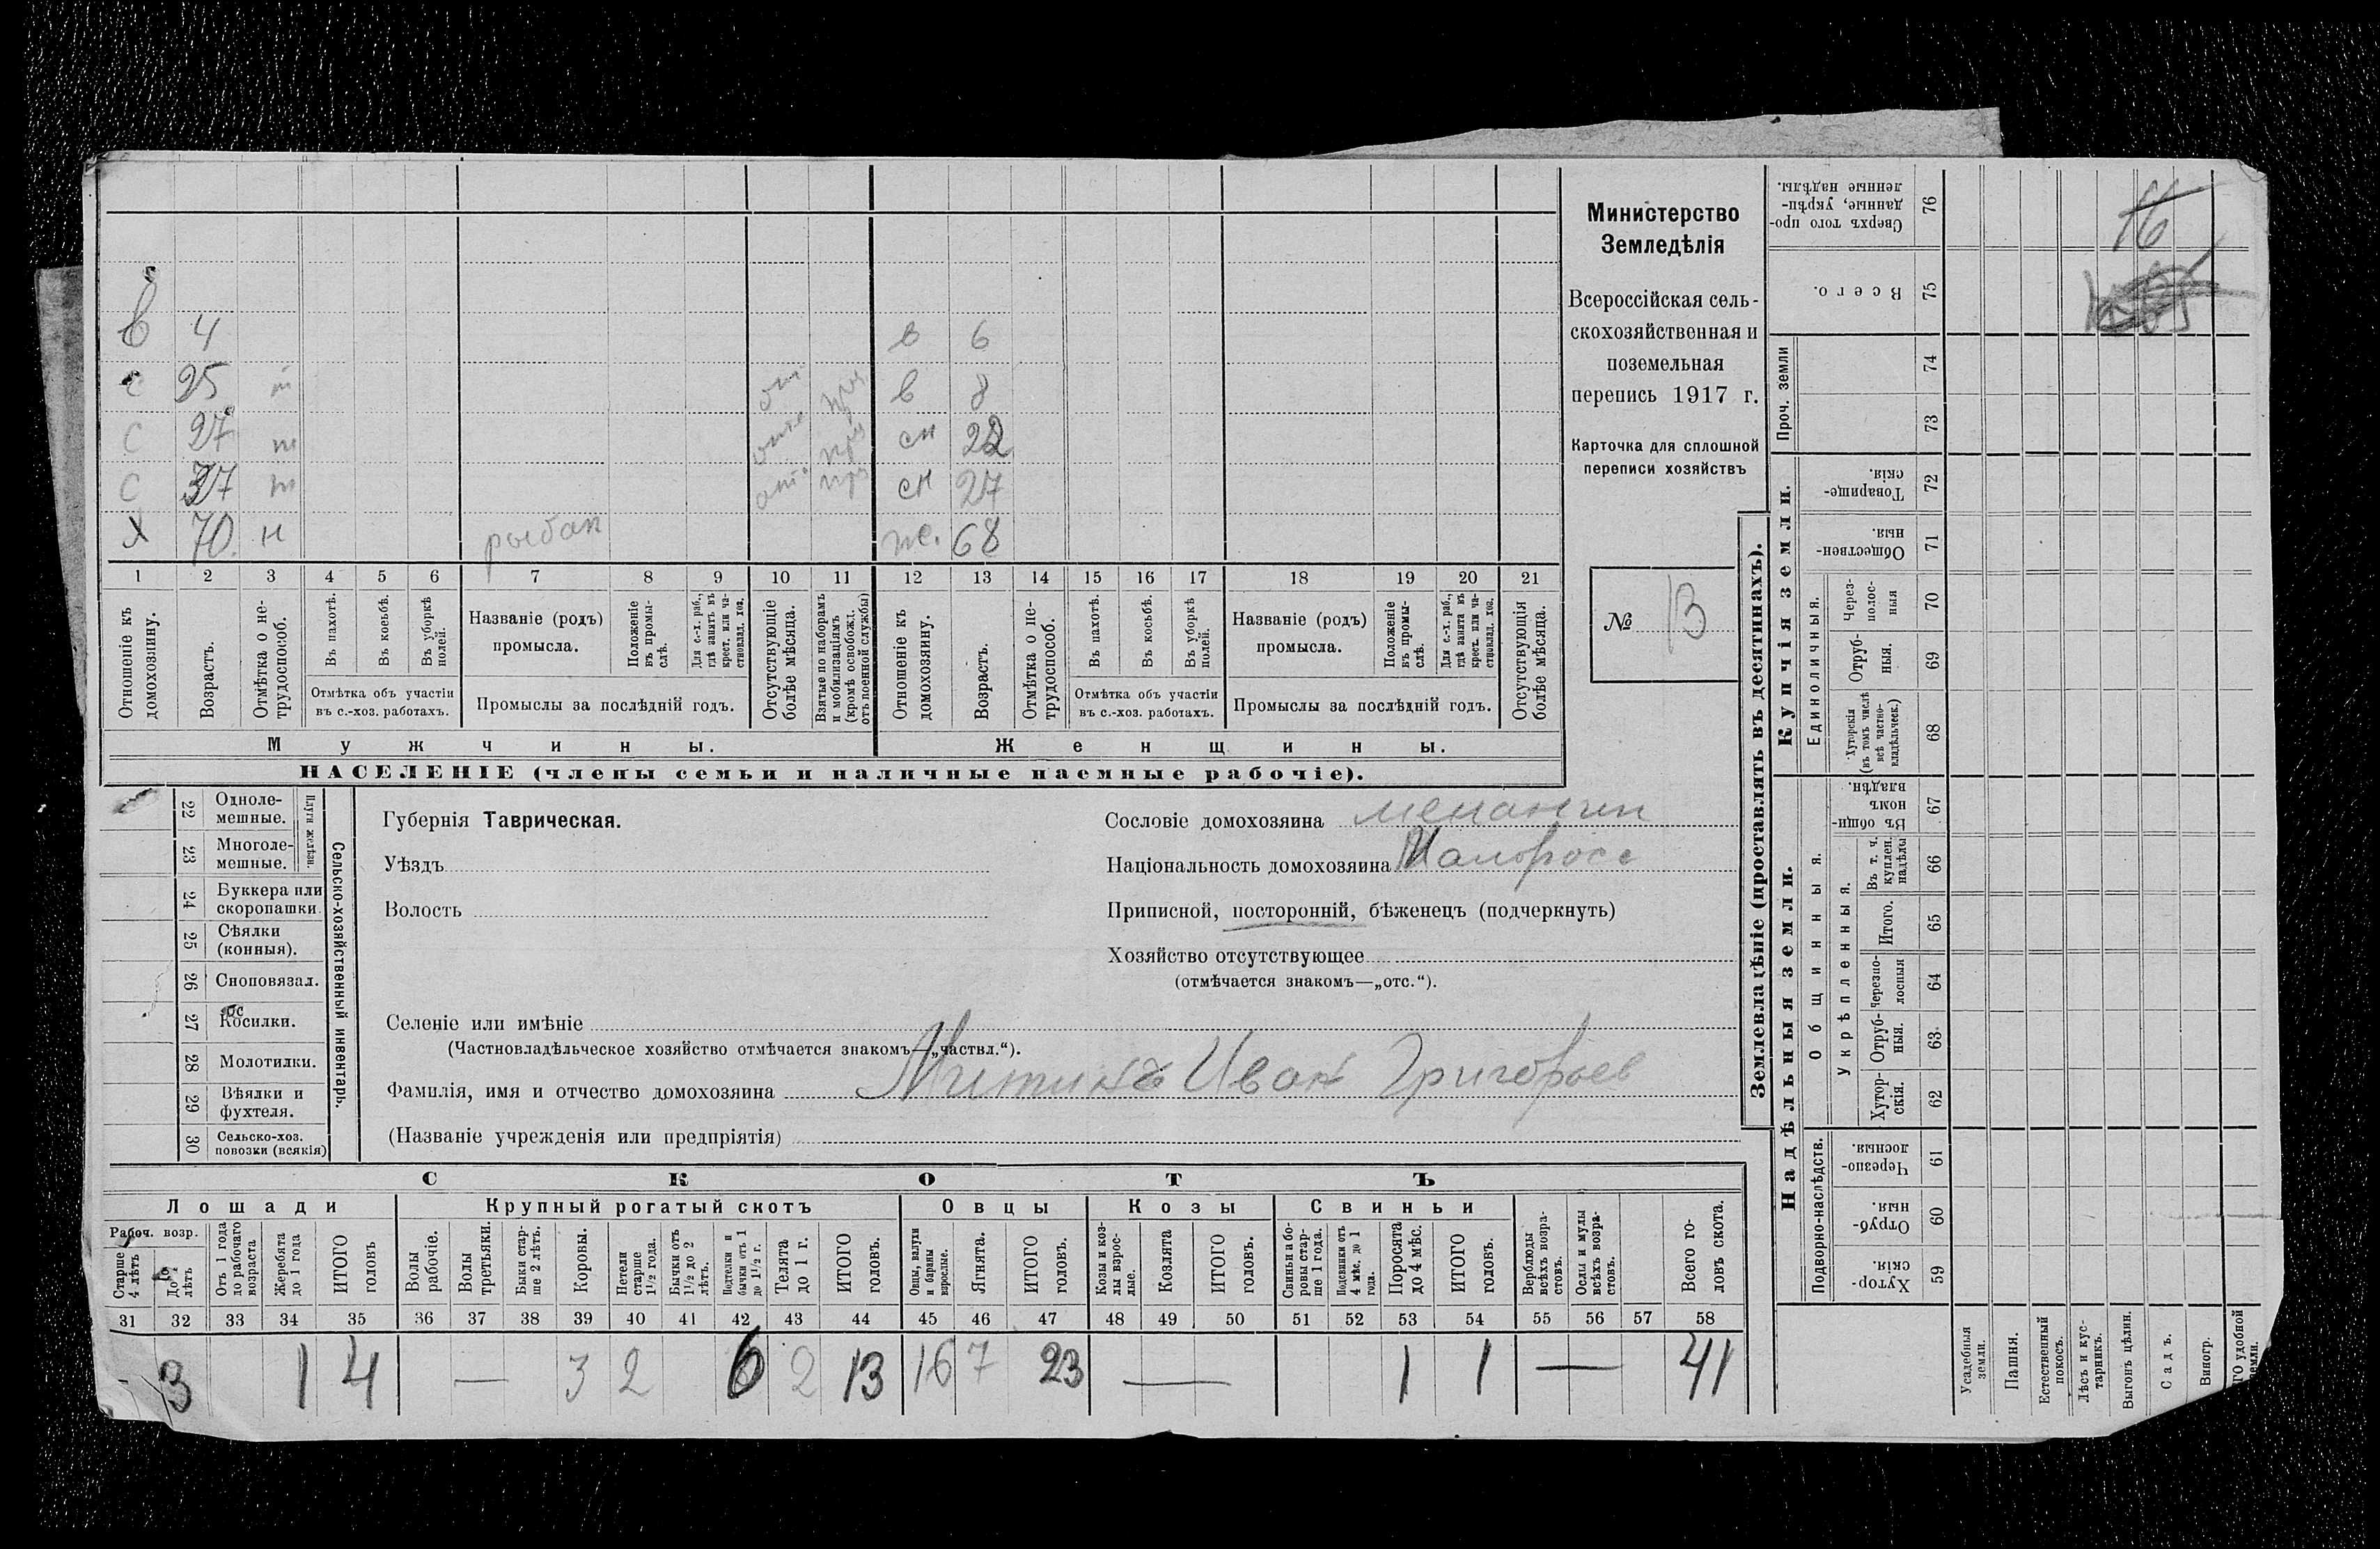 в 4 в 6
с 25 т от. в 8
с 27 т сн 22
с 37 т от. сн 27
х 70. н рыбак же. 68
1 2 3 4 5 6 7 8 9 10 11 12 13 14 15 16 17 18 19 20 21
Отношеніе къ домохозяину.
Возрастъ.
Отмѣтка о не-
трудоспособ.
Въ пахотѣ.
Въ косьбѣ.
Въ уборкѣ
полей.
Отмѣтка объ участіи
въ с.-хоз. работахъ.
Названіе (родъ)
промысла.
Положеніе
въ промы-
слѣ.
Для с.-х. раб.,
гдѣ занятъ въ
крест. или ча-
стновлад. хоз.
Промыслы за послѣдній годъ.
Отсутствующіе
болѣе мѣсяца.
Взятые по наборамъ
и мобилизаціямъ
(кромѣ освобожд.
отъ военной службы)
Отношеніе къ
домохозяину.
Возрастъ.
Отмѣтка о не-
трудоспособ.
Въ пахотѣ.
Въ косьбѣ.
Въ уборкѣ
полей.
Отмѣтка объ участіи
въ с.-хоз. работахъ.
Названіе (родъ)
промысла.
Положеніе
въ промы-
слѣ.
Для с.-х. раб.,
гдѣ занята въ
крест. или ча-
стновлад. хоз.
Промыслы за послѣдній годъ.
Отсутствующія
болѣе мѣсяца.
Мужчины.
Женщины.
НАСЕЛЕНІЕ (члены семьи и наличные наемные рабочіе).
Министерство
Земледѣлія
Всероссійская сель-
скохозяйственная и
поземельная
перепись 1917 г.
Карточка для сплошной
переписи хозяйствъ
№ 13
22 Одноле-
мешные.
23 Многоле-
мешные.
Плуги желѣзн.
24 Буккера или
скоропашки
25 Сѣялки
(конныя).
26 Сноповязал.
27 Косилки.
28 Молотилки.
29 Вѣялки и
фухтеля.
30 Сельско-хоз.
повозки (всякія)
Сельско-хозяйственный инвентарь.
Губернія Таврическая.
Уѣздъ
Волость
Сословіе домохозяина мещанин
Національность домохозяина Малоросс
Приписной, посторонній, бѣженецъ (подчеркнуть)
Хозяйство отсутствующее
(отмѣчается знакомъ—„отс.“).
Селеніе или имѣніе
(Частновладѣльческое хозяйство отмѣчается знакомъ—„частвл.“).
Фамилія, имя и отчество домохозяина Митинъ Иван Григорьев
(Названіе учрежденія или предпріятія)
СКОТЪ
Лошади
Крупный рогатый скотъ
Овцы
Козы
Свиньи
Рабоч. возр.
Старше
4 лѣтъ
До 4
лѣтъ
Отъ 1 года
до рабочаго
возраста
Жеребята
до 1 года
ИТОГО
головъ
Волы
рабочіе.
Волы
третьяки.
Быки стар-
ше 2 лѣтъ.
Коровы.
Нетели
старше
1½ года.
Бычки отъ
1½ до 2
лѣтъ.
Подтелки и
бычки отъ 1
до 1½ г.
Телята
до 1 г.
ИТОГО
головъ.
Овцы, валухи
и бараны
взрослые.
Ягнята.
ИТОГО
головъ.
Козы и коз-
лы взрос-
лые.
Козлята
ИТОГО
головъ.
Свиньи и бо-
ровы стар-
ше 1 года.
Подсвинки отъ
4 мѣс. до 1
года.
Поросята
до 4 мѣс.
ИТОГО
головъ.
Верблюды
всѣхъ возра-
стовъ.
Ослы и мулы
всѣхъ возра-
стовъ.
Всего го-
ловъ скота.
31 32 33 34 35 36 37 38 39 40 41 42 43 44 45 46 47 48 49 50 51 52 53 54 55 56 57 58
- 3 1 4 — 3 2 6 2 13 16 7 23 — 1 1 — 41
Землевладѣніе (проставлять въ десятинахъ).
76 Сверхъ того про-
данные, укрѣп-
ленные надѣлы.
16
75 Всего.
Проч. земли
74
73
Купчія земли.
72 Товарище-
скія.
71 Обществен-
ныя.
Единоличныя.
70 Через-
полос-
ныя
69 Отруб-
ныя.
68 Хуторскія
(въ томъ числѣ
всѣ частно-
владѣльческ.)
Надѣльныя земли.
Общинныя.
67 Въ общи-
номъ
владѣн.
Укрѣпленныя.
66 Въ т. ч.
куплен.
надѣлы
65 Итого.
64 Черезпо-
лосныя
63 Отруб-
ныя.
62 Хутор-
скія.
Подворно-наслѣдств.
61 Черезпо-
лосныя.
60 Отруб-
ныя.
59 Хутор-
скія.
Усадебныя
земли.
Пашня.
Естественный
покосъ.
Лѣсъ и кус-
тарникъ.
Выгонъ цѣлин.
Садъ.
Виногр.
ГО удобной
земли.